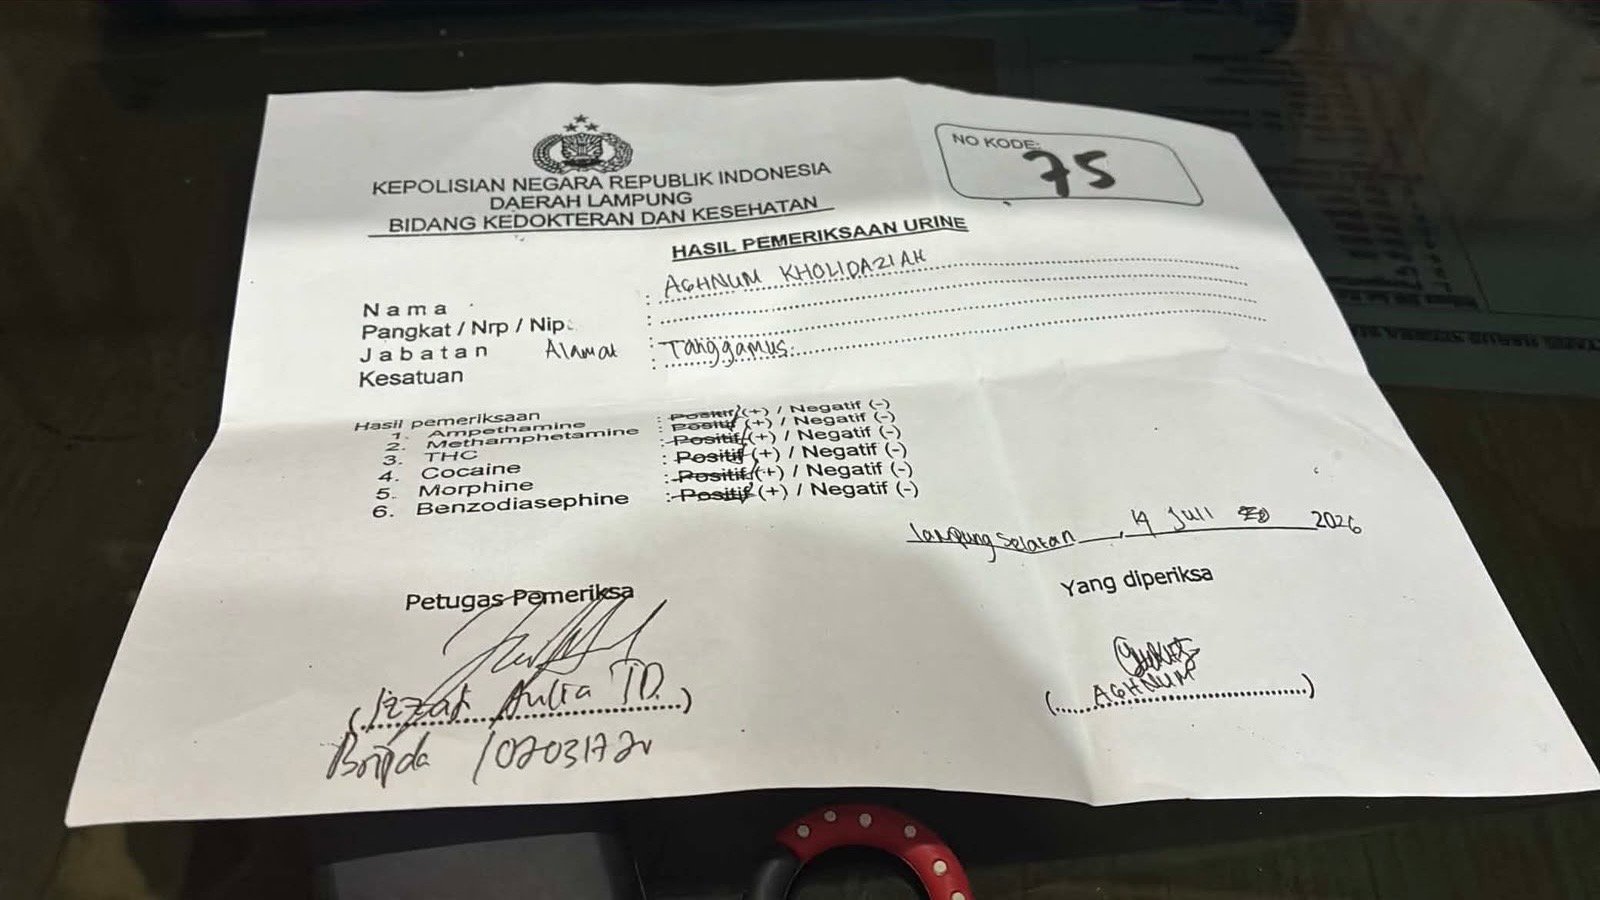 NO KODE:
75
KEPOLISIAN NEGARA REPUBLIK INDONESIA
DAERAH LAMPUNG
BIDANG KEDOKTERAN DAN KESEHATAN
HASIL PEMERIKSAAN URINE
Nama : AGHNUM KHOLIDAZIAH
Pangkat / Nrp / Nip. :
Jabatan Alamat : Tanggamus
Kesatuan :
Hasil pemeriksaan
1. Ampethamine : Positif (+) / Negatif (-)
2. Methamphetamine : Positif (+) / Negatif (-)
3. THC : Positif (+) / Negatif (-)
4. Cocaine : Positif (+) / Negatif (-)
5. Morphine : Positif (+) / Negatif (-)
6. Benzodiasephine : Positif (+) / Negatif (-)
Lampung Selatan, 14 Juli 2026
Petugas Pemeriksa
Yang diperiksa
(Izzat Aulia TD.)
(AGHNUM)
Bripda /